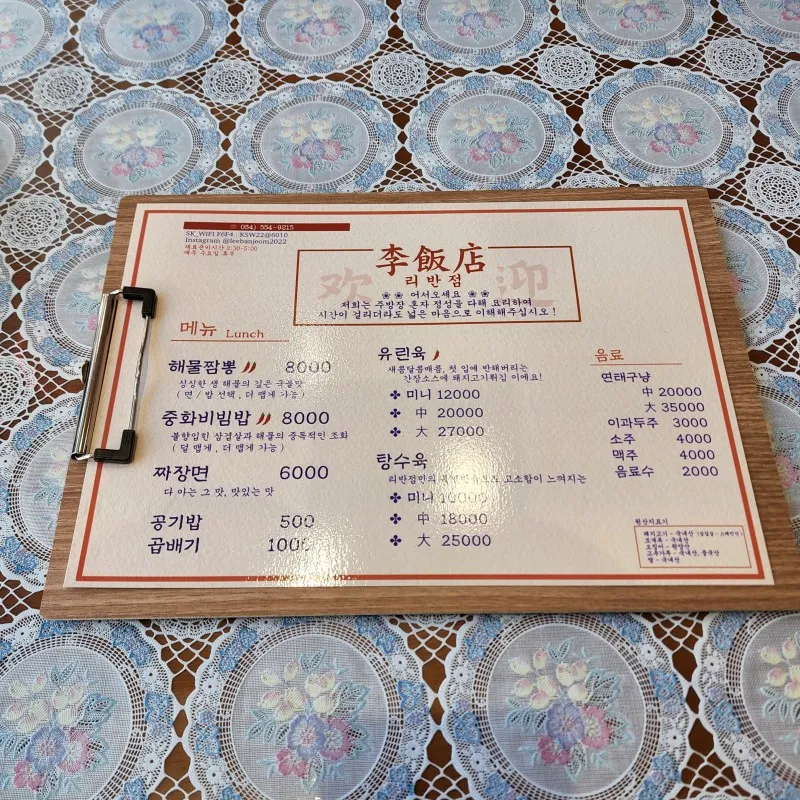 ☏ 054) 554-9215
SK_WIFI F6F4 : KSW22@6010
Instagram @leebanjeom2022
재료준비시간 2:30-5:00
매주 수요일 휴무
欢 迎
李飯店
리반점
❀❀ 어서오세요 ❀❀
저희는 주방장 혼자 정성을 다해 요리하여
시간이 걸리더라도 넓은 마음으로 이해해주십시오 !
메뉴 Lunch
해물짬뽕 8000
싱싱한 생 해물의 깊은 국물맛
( 면 / 밥 선택, 더 맵게 가능 )
중화비빔밥 8000
불향입힌 삼겹살과 해물의 중독적인 조화
( 덜 맵게 , 더 맵게 가능 )
짜장면 6000
다 아는 그 맛, 맛있는 맛
공기밥 500
곱배기 1000
유린육
새콤달콤매콤, 첫 입에 반해버리는
간장소스에 돼지고기튀김 이에요!
✤ 미니 12000
✤ 中 20000
✤ 大 27000
탕수육
리반점만의 고소함이 느껴지는
✤ 미니
✤ 中 18000
✤ 大 25000
음료
연태구냥
中 20000
大 35000
이과두주 3000
소주 4000
맥주 4000
음료수 2000
원산지표기
돼지고기 - 국내산
고추가루 - 국내산, 중국산
쌀 - 국내산